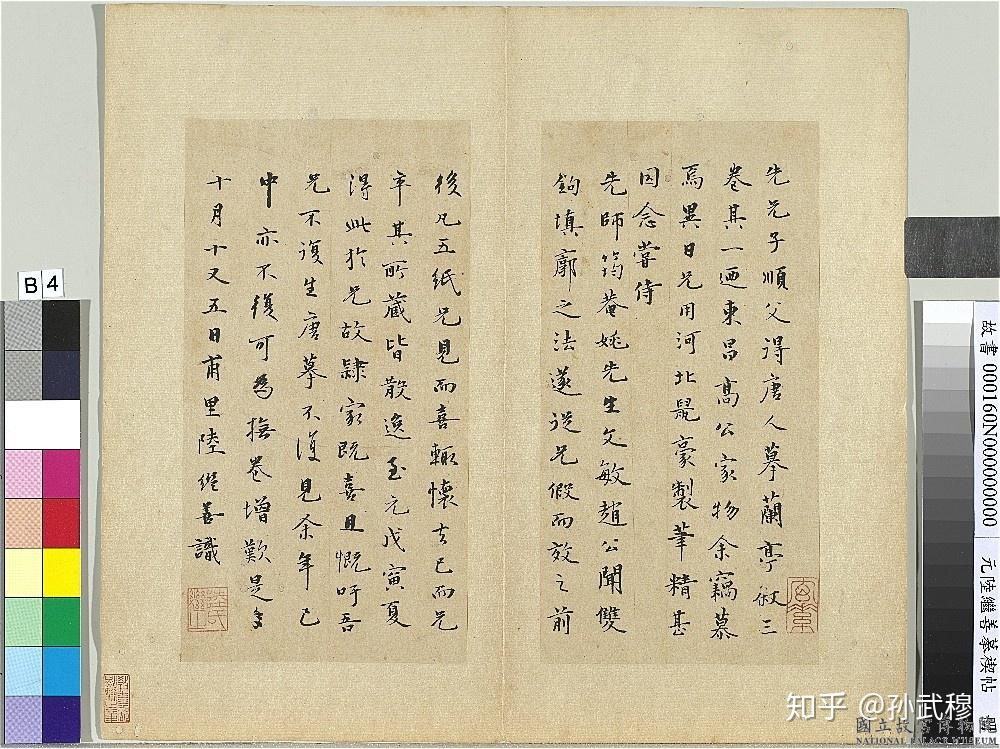 先兄子順父得唐人摹蘭亭敘三
卷其一迺東昌高公家物余竊慕
焉異日兄用河北鼠豪製筆精甚
因念嘗侍
先師筠菴姚先生文敏趙公聞雙
鉤填廓之法遂從兄假而效之前
後凡五紙兄見而喜輒懷去已而兄
卒其所藏皆散逸至元戊寅夏
得此於兄故隸家既喜且慨吁吾
兄不復生唐摹不復見余年已
中亦不復可為撫卷增歎是年
十月十又五日甫里陸繼善識
B 4
故書 000160N000000000
元陸繼善摹禊帖
知乎 @孙武穆
國立故宮博物院
NATIONAL PALACE MUSEUM